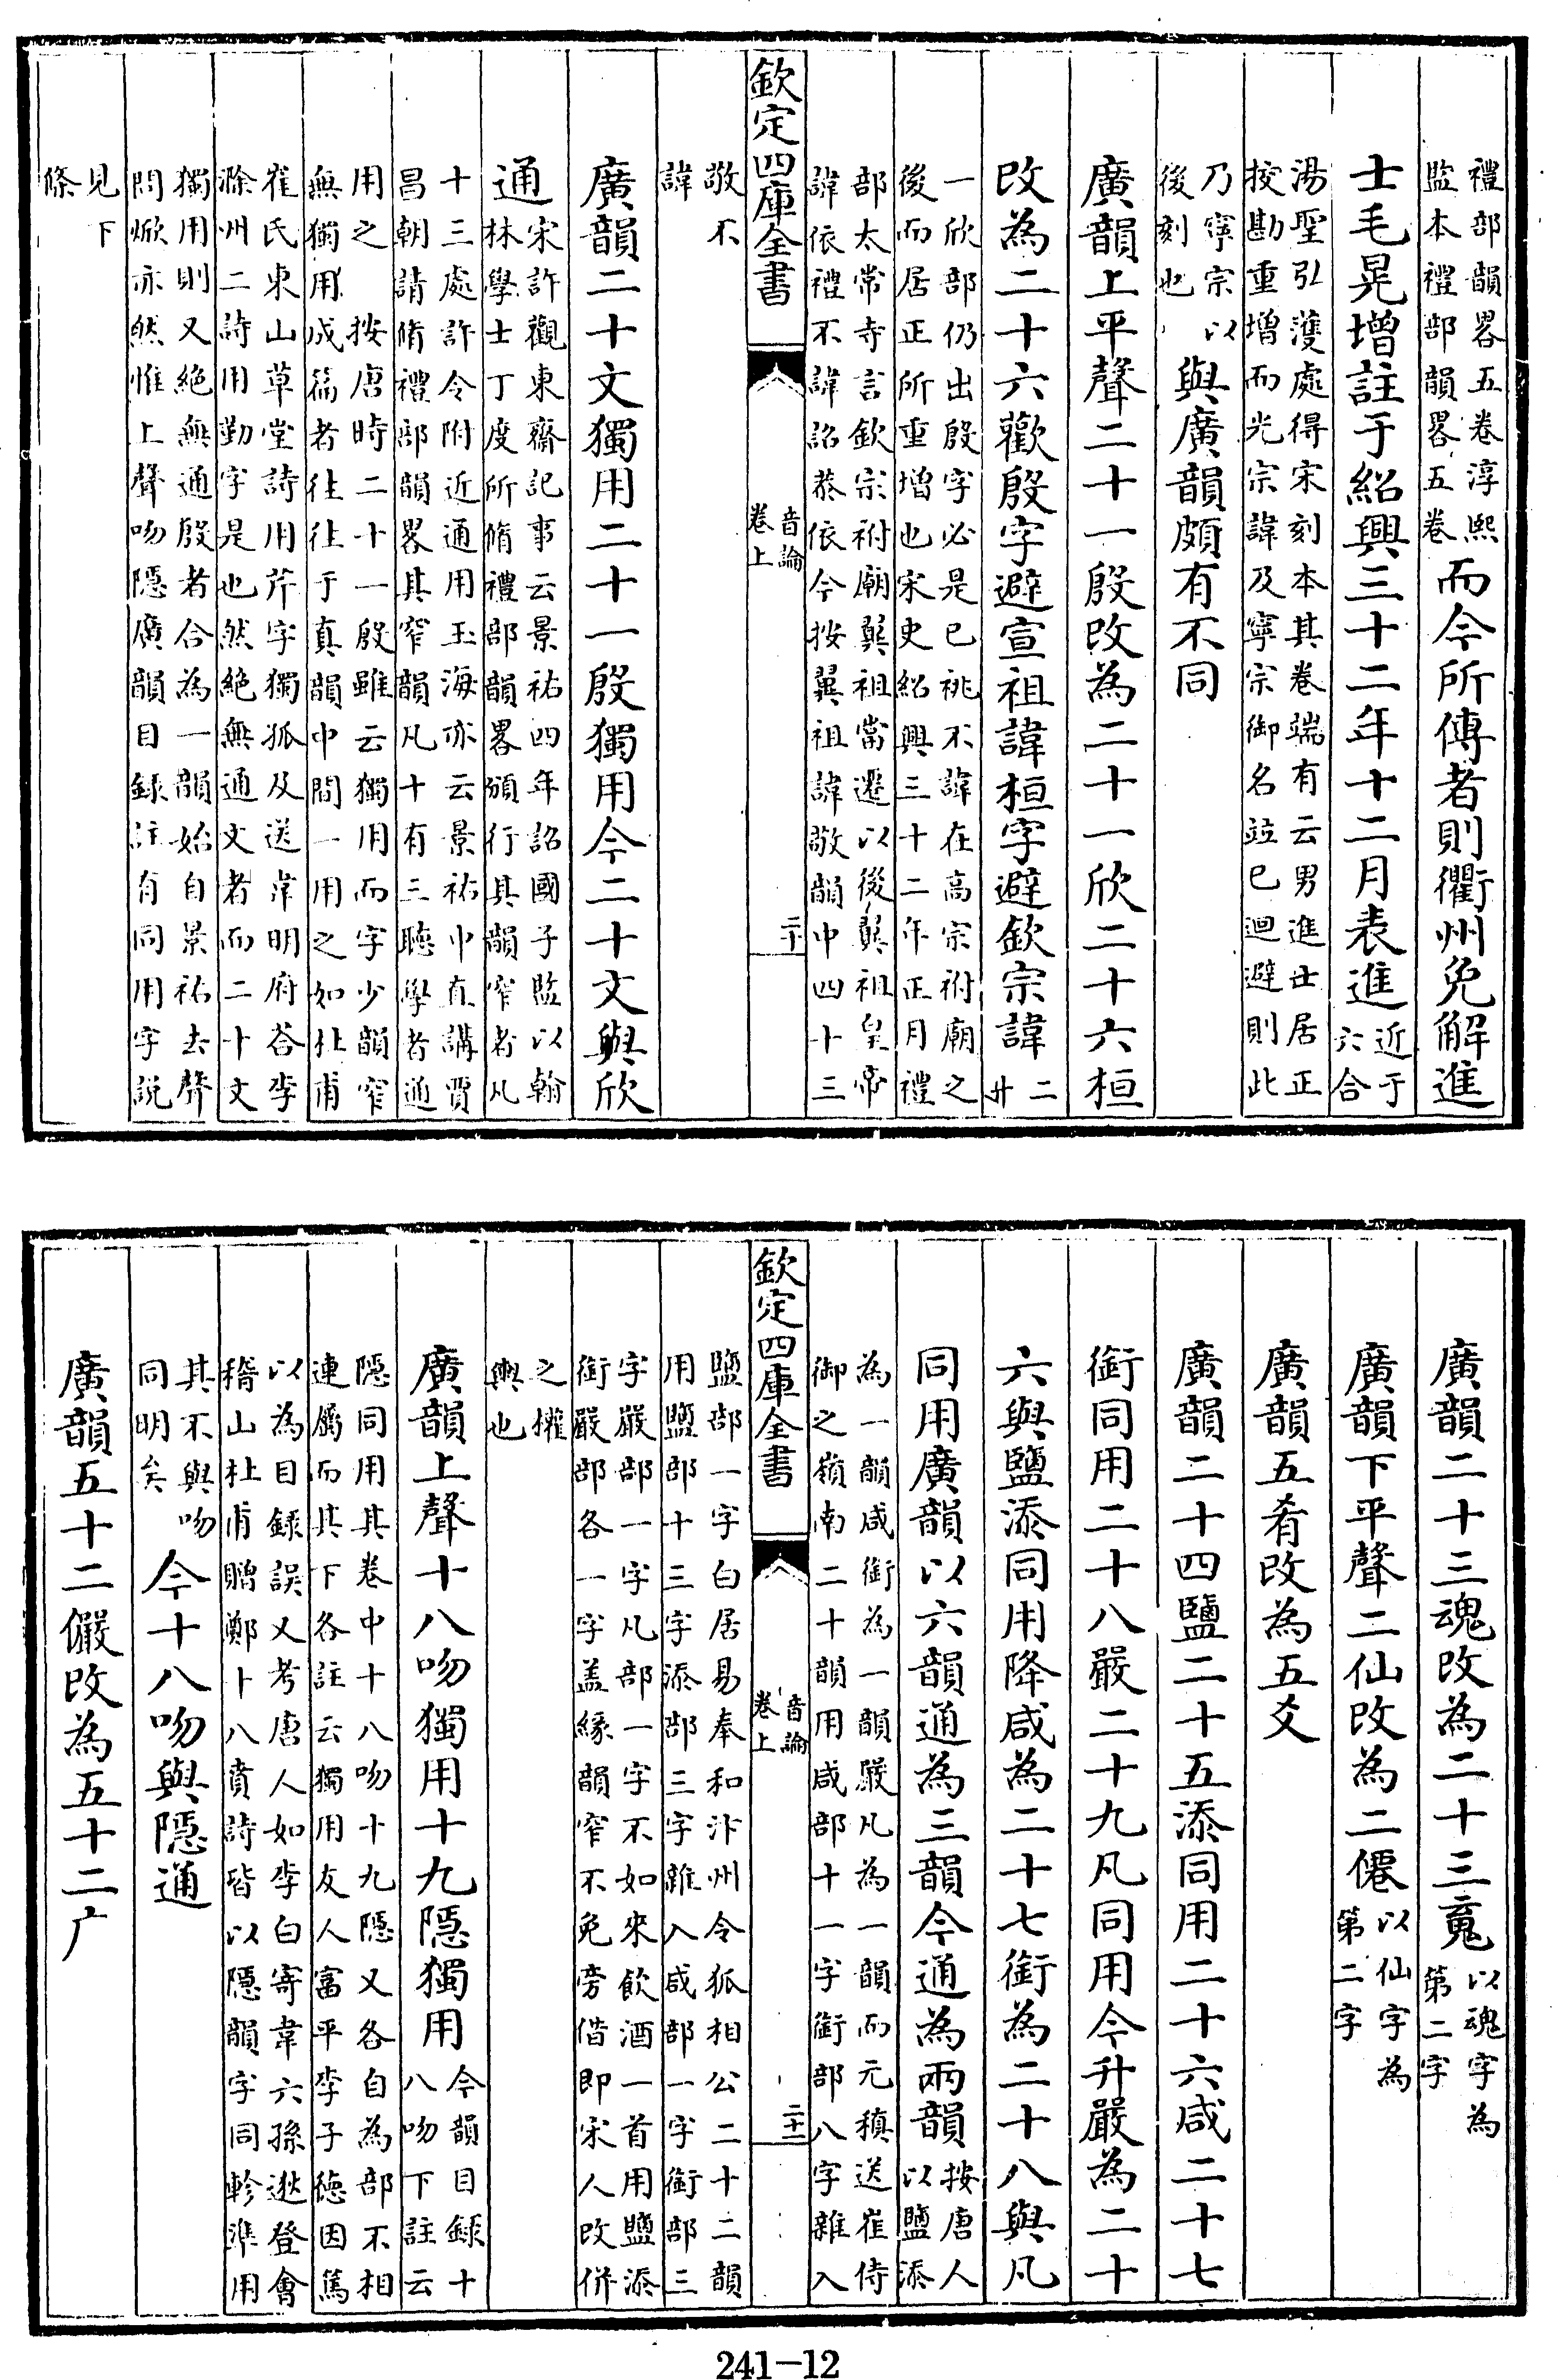 禮部韻畧五卷淳熙
監本禮部韻畧五卷
而今所傳者則衢州免解進
士毛晃增註于紹興三十二年十二月表進
近于
六合
湯聖弘濩處得宋刻本其卷端有云男進士居正
挍勘重增而光宗諱及寧宗御名竝已迴避則此
乃寧宗以
後刻也
與廣韻頗有不同
廣韻上平聲二十一殷改為二十一欣二十六桓
改為二十六歡殷字避宣祖諱桓字避欽宗諱
二
廾
一欣部仍出殷字必是已祧不諱在高宗祔廟之
後而居正所重增也宋史紹興三十二年正月禮
部太常寺言欽宗祔廟翼祖當遷以後翼祖皇帝
諱依禮不諱詔恭依今按翼祖諱敬韻中四十三
欽定四庫全書
音論
卷上
二十
敬不
諱
廣韻二十文獨用二十一殷獨用今二十文與欣
通
宋許觀東齋記事云景祐四年詔國子監以翰
林學士丁度所脩禮部韻畧頒行其韻窄者凡
十三處許令附近通用玉海亦云景祐中直講賈
昌朝請脩禮部韻畧其窄韻凡十有三聽學者通
用之 按唐時二十一殷雖云獨用而字少韻窄
無獨用成篇者往往于真韻中間一用之如杜甫
崔氏東山草堂詩用芹字獨孤及送韋明府荅李
滁州二詩用勤字是也然絶無通文者而二十文
獨用則又絶無通殷者合為一韻始自景祐去聲
問焮亦然惟上聲吻隱廣韻目録註有同用字説
見下
條
廣韻二十三魂改為二十三䰟
以魂字為
第二字
廣韻下平聲二仙改為二僊
以仙字為
第二字
廣韻五肴改為五爻
廣韻二十四鹽二十五添同用二十六咸二十七
銜同用二十八嚴二十九凡同用今升嚴為二十
六與鹽添同用降咸為二十七銜為二十八與凡
同用廣韻以六韻通為三韻今通為兩韻
按唐人
以鹽添
為一韻咸銜為一韻嚴凡為一韻而元稹送崔侍
御之嶺南二十韻用咸部十一字銜部八字雜入
欽定四庫全書
音論
卷上
二十一
鹽部一字白居易奉和汴州令狐相公二十二韻
用鹽部十三字添部三字雜入咸部一字銜部三
字嚴部一字凡部一字不如來飲酒一首用鹽添
銜嚴部各一字盖緣韻窄不免旁借即宋人改併
之權
輿也
廣韻上聲十八吻獨用十九隱獨用
今韻目録十
八吻下註云
隱同用其卷中十八吻十九隱又各自為部不相
連屬而其下各註云獨用友人富平李子德因篤
以為目録誤又考唐人如李白寄韋六孫逖登會
稽山杜甫贈鄭十八賁詩皆以隱韻字同軫準用
其不與吻
同明矣
今十八吻與隱通
廣韻五十二儼改為五十二广
241-12